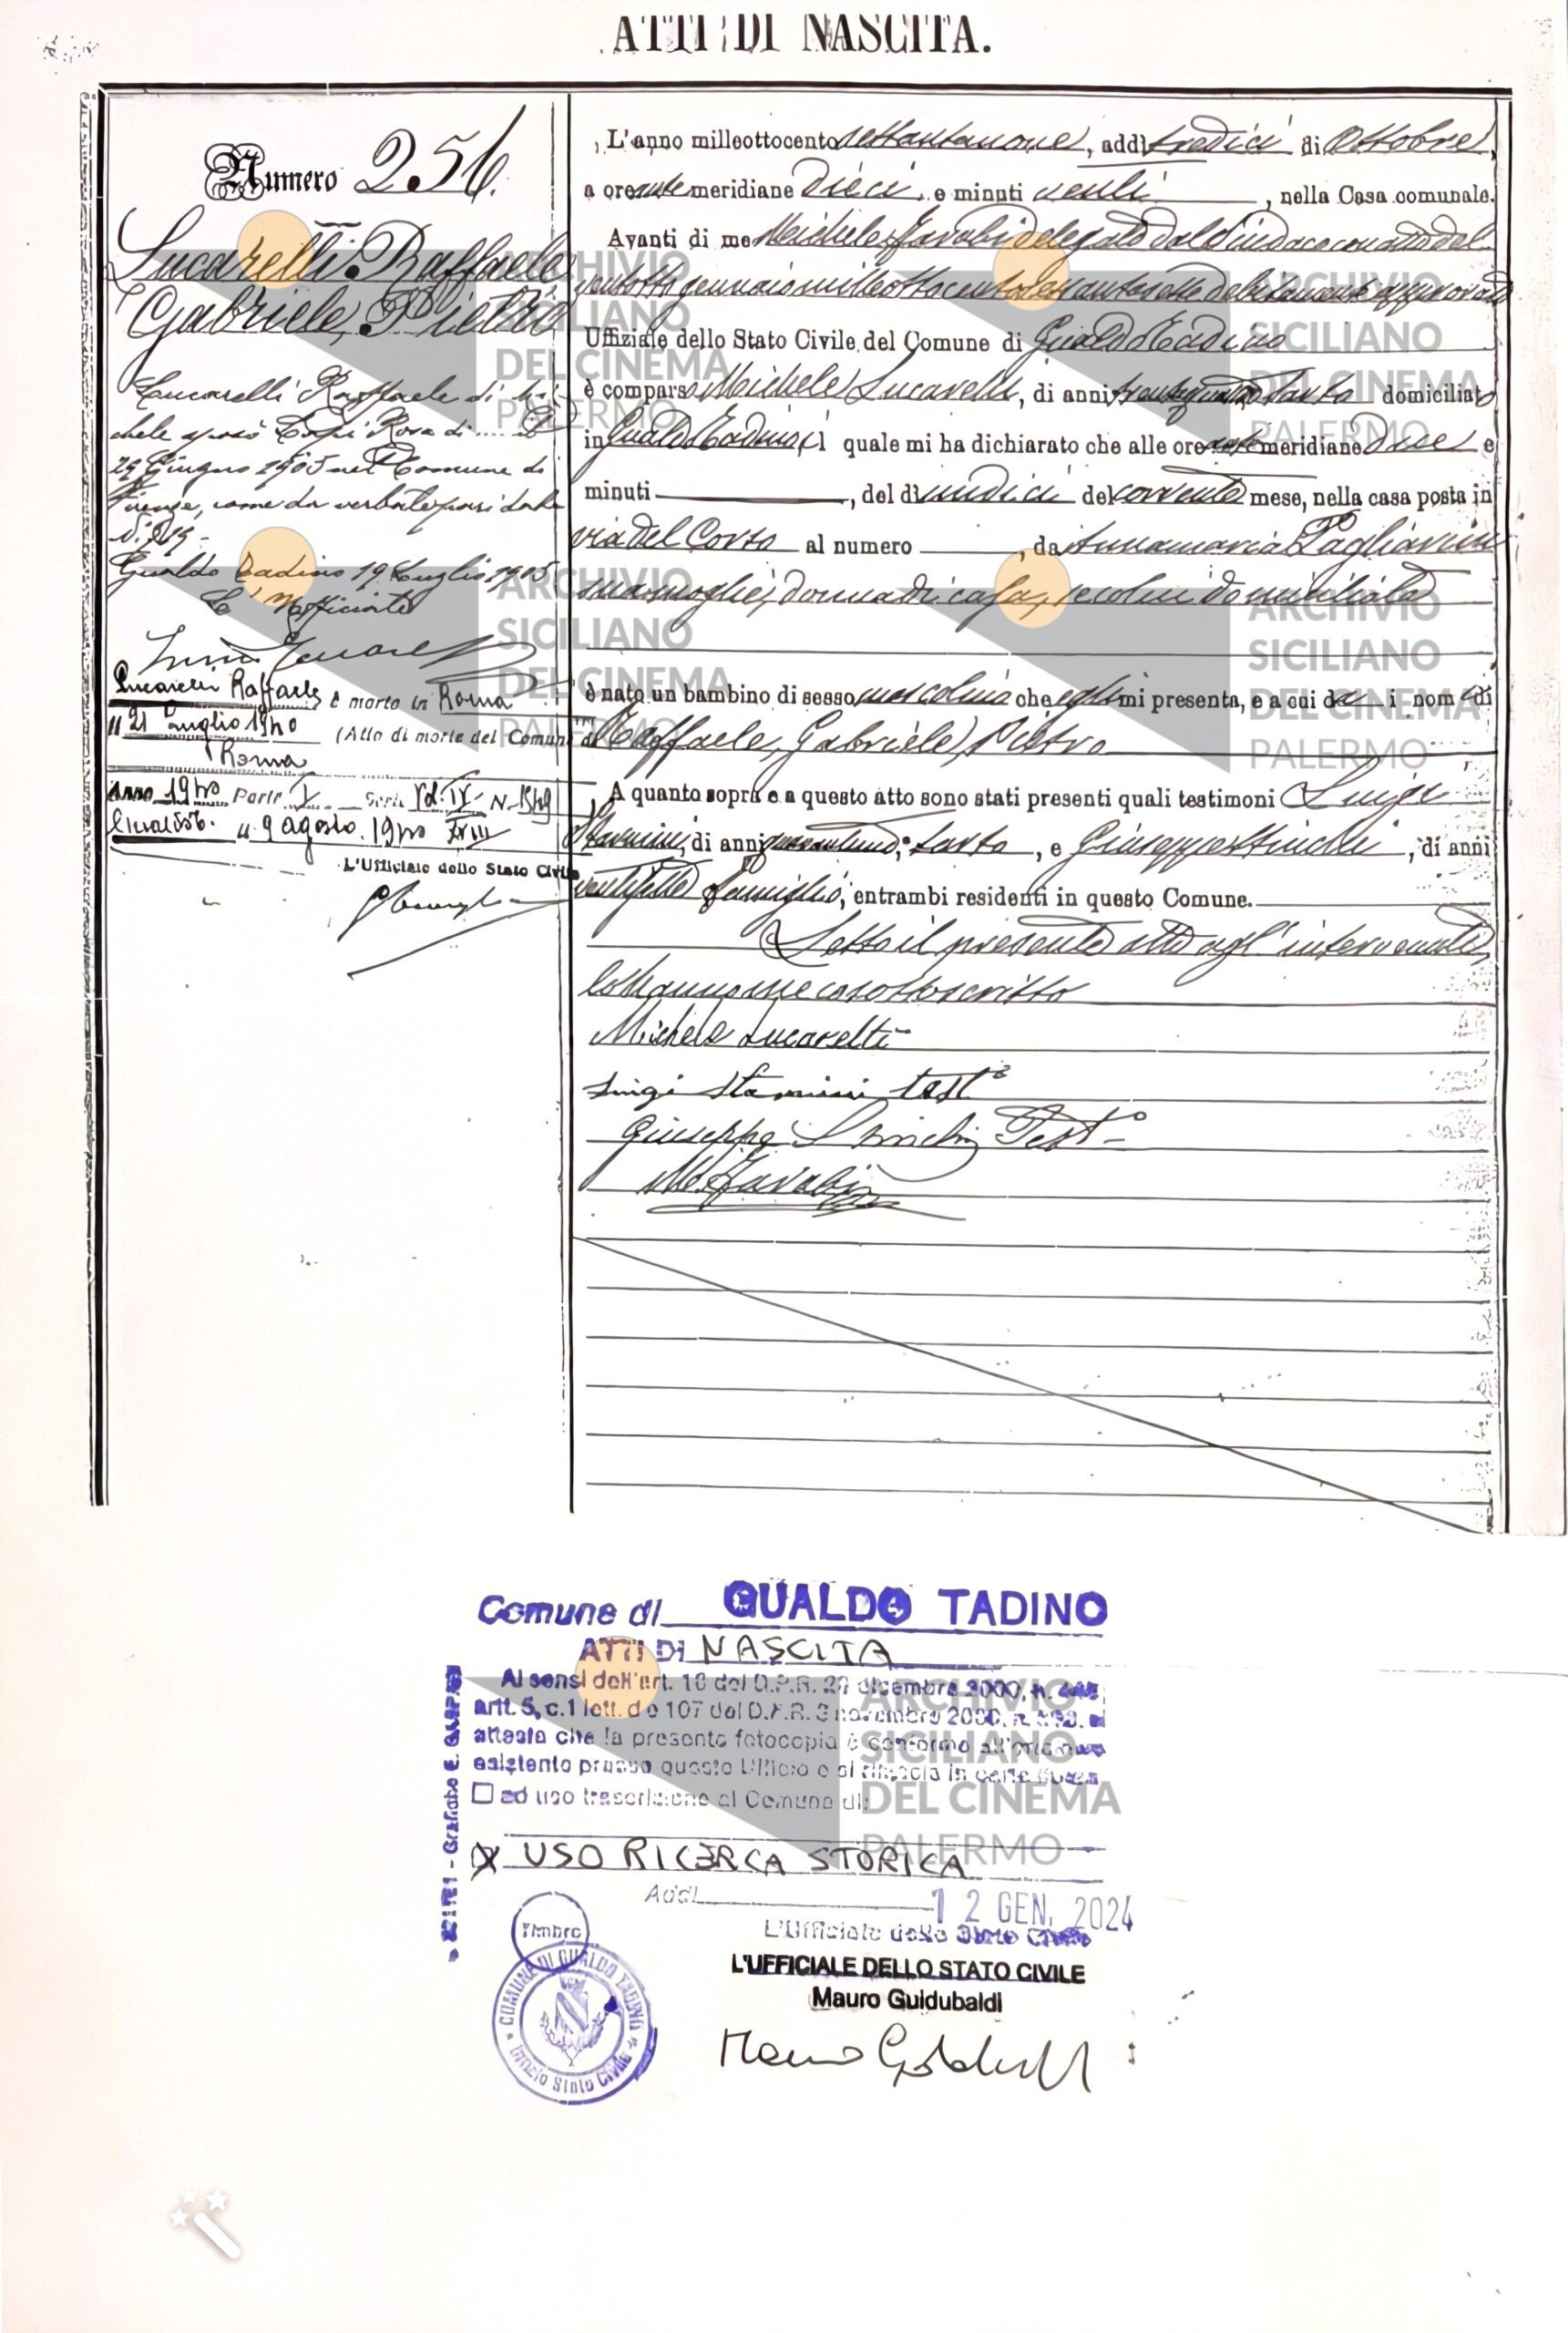 ATTI DI NASCITA.
Numero 256.
Lucarelli Raffaele
Gabriele, Pietro
Lucarelli Raffaele di Mi-
chele sposò Rosa di
29 Giugno 1905 nel Comune di
Firenze, come da verbale pari data
N. 719 -
Gualdo Tadino 19 Luglio 1905
L'Ufficiale
Lucarelli Raffaele è morto in Roma
il 21 Luglio 1940 (Atto di morte del Comune di
Roma
Anno 1940 Parte I Serie Vol. IV N. 1549
li 9 agosto 1940 XVIII
L'Ufficiale dello Stato Civile
L'anno milleottocentosettantanove, addì tredici di Ottobre,
a ore ante meridiane dieci, e minuti venti, nella Casa comunale.
Avanti di me Michele delegato dal Sindaco con atto del
ventotto gennaio milleottocento debitamente approvato
Uffiziale dello Stato Civile del Comune di Gualdo Tadino
è comparso Michele Lucarelli, di anni sarto domiciliato
in Gualdo Tadino, il quale mi ha dichiarato che alle ore meridiane due e
minuti, del dì undici del corrente mese, nella casa posta in
via del Corso al numero, da Annamaria Pagliarini
sua moglie, donna di casa, seco lui domiciliata
è nato un bambino di sesso mascolino che egli mi presenta, e a cui dà i nomi di
Raffaele, Gabriele, Pietro
A quanto sopra e a questo atto sono stati presenti quali testimoni Luigi
Stamini, di anni quarantuno, sarto, e Giuseppe, di anni
ventisette famiglio, entrambi residenti in questo Comune.
Letto il presente atto agl'intervenuti,
lo hanno meco sottoscritto
Michele Lucarelli
Luigi Stamini test.e
Giuseppe Test.o
Comune di GUALDO TADINO
ATTI DI NASCITA
Ai sensi dell'art. 18 del D.P.R. 28 dicembre 2000, n. 445,
artt. 5, c.1 lett. d e 107 del D.P.R. 3 novembre 2000, n. 396, si
attesta che la presente fotocopia è conforme all'originale
esistente presso questo Ufficio e si rilascia in carta libera
ad uso trascrizione al Comune di:
X USO RICERCA STORICA
Addì 12 GEN. 2024
Timbro
L'Ufficiale dello Stato Civile
L'UFFICIALE DELLO STATO CIVILE
Mauro Guidubaldi
COMUNE DI GUALDO TADINO
Ufficio Stato Civile
ARCHIVIO
SICILIANO
DEL CINEMA
PALERMO
ARCHIVIO
SICILIANO
DEL CINEMA
PALERMO
ARCHIVIO
SICILIANO
DEL CINEMA
PALERMO
ARCHIVIO
SICILIANO
DEL CINEMA
PALERMO
ARCHIVIO
SICILIANO
DEL CINEMA
PALERMO